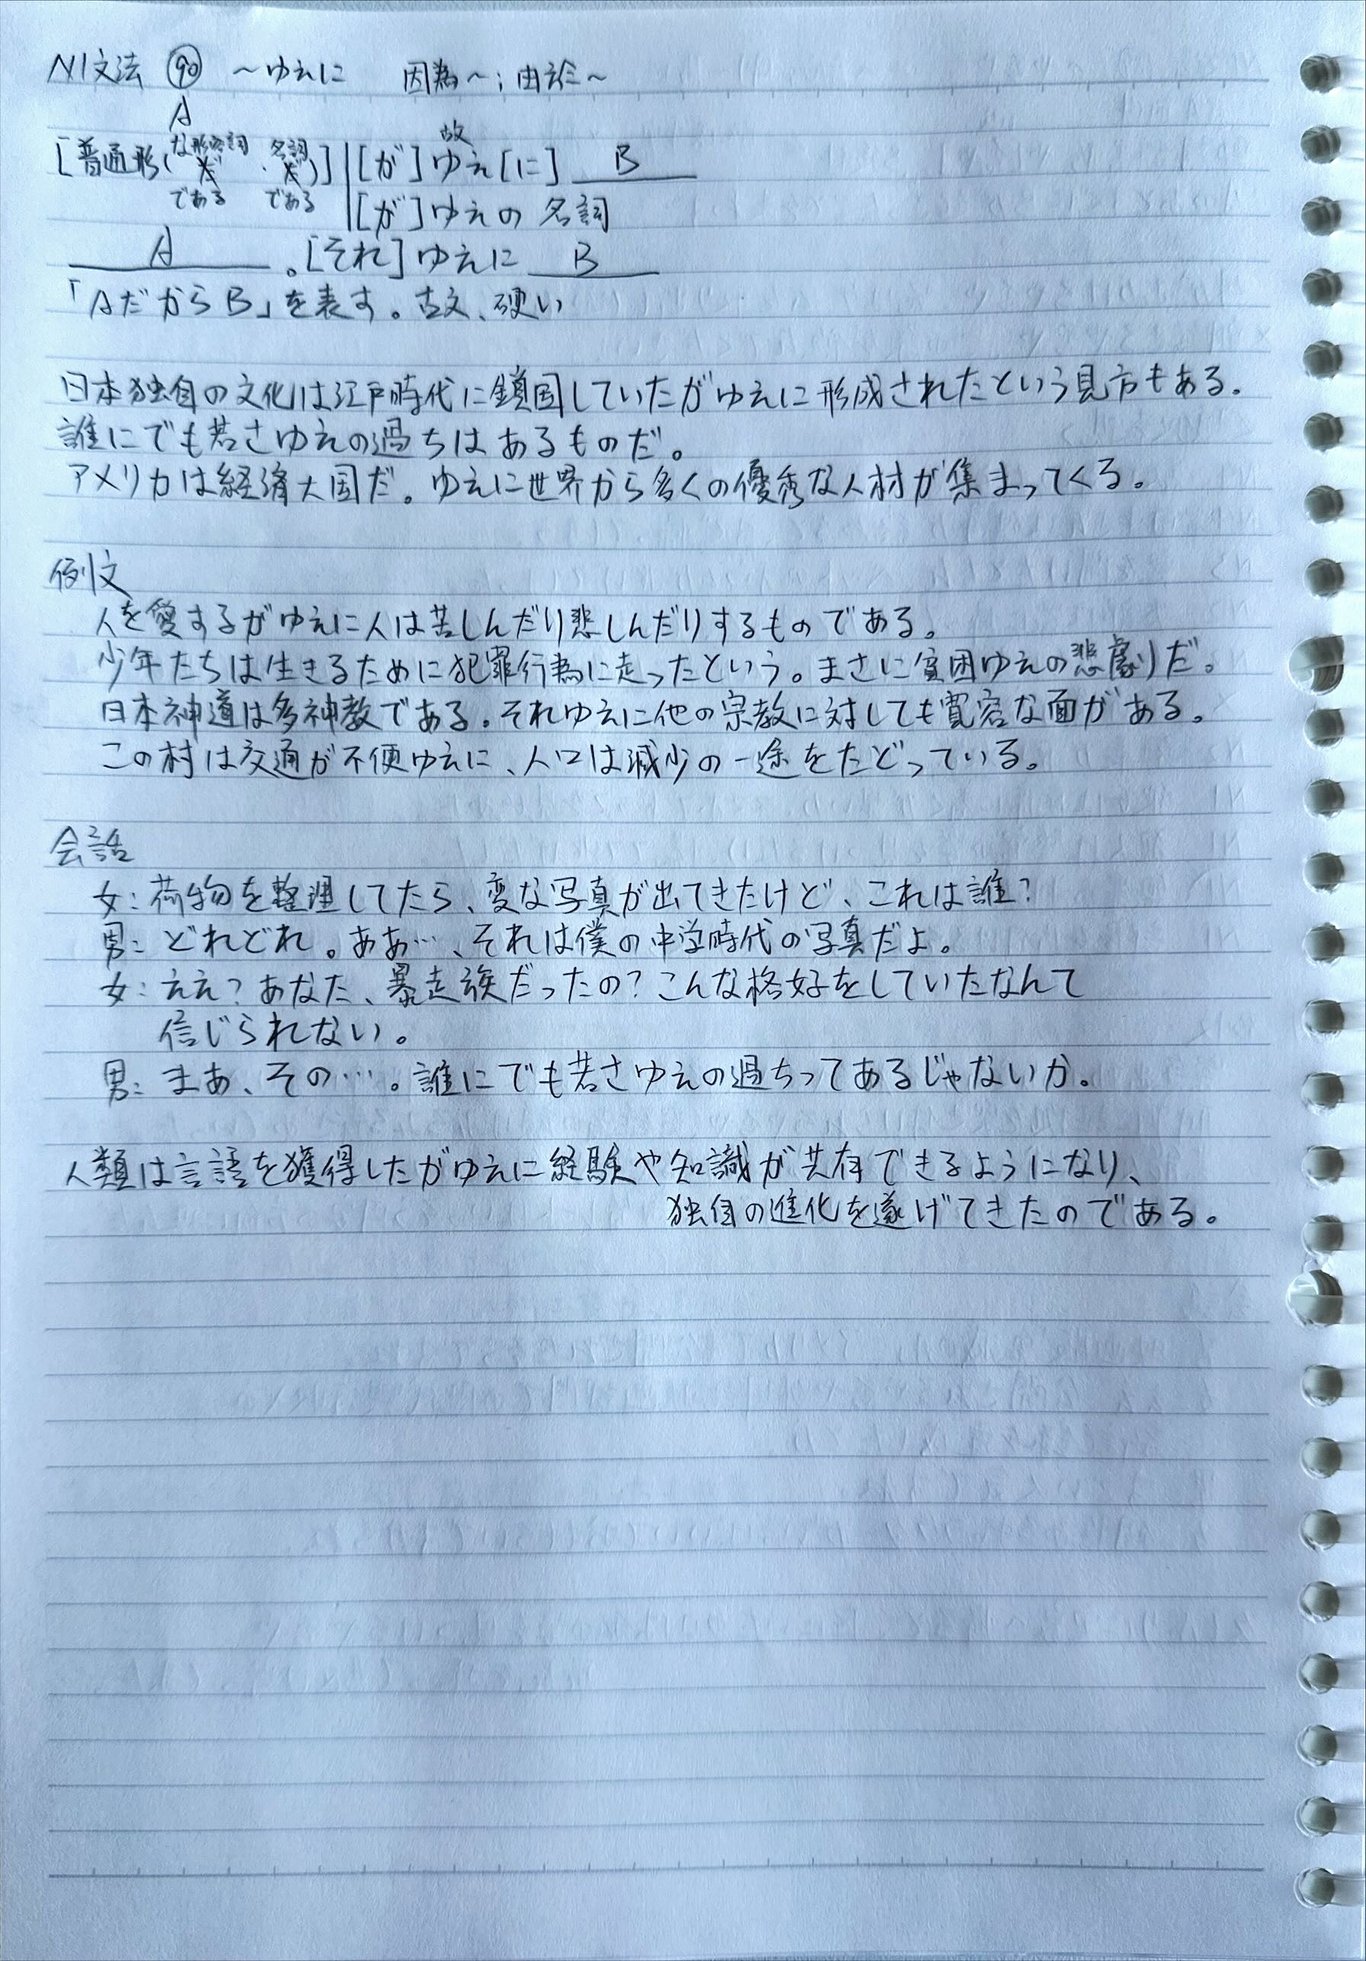 N1文法 ⑨⓪ ～ゆえに 因為～；由於～
A
[普通形(な形容詞だ・名詞だ)] [が]故ゆえ[に] B
である である [が]ゆえの 名詞
A 。[それ]ゆえに B
「AだからB」を表す。古文、硬い
日本独自の文化は江戸時代に鎖国していたがゆえに形成されたという見方もある。
誰にでも若さゆえの過ちはあるものだ。
アメリカは経済大国だ。ゆえに世界から多くの優秀な人材が集まってくる。
例文
人を愛するがゆえに人は苦しんだり悲しんだりするものである。
少年たちは生きるために犯罪行為に走ったという。まさに貧困ゆえの悲劇だ。
日本神道は多神教である。それゆえに他の宗教に対しても寛容な面がある。
この村は交通が不便ゆえに、人口は減少の一途をたどっている。
会話
女：荷物を整理してたら、変な写真が出てきたけど、これは誰？
男：どれどれ。ああ…、それは僕の中学時代の写真だよ。
女：ええ？あなた、暴走族だったの？こんな格好をしていたなんて
信じられない。
男：まあ、その…。誰にでも若さゆえの過ちってあるじゃないか。
人類は言語を獲得したがゆえに経験や知識が共有できるようになり、
独自の進化を遂げてきたのである。